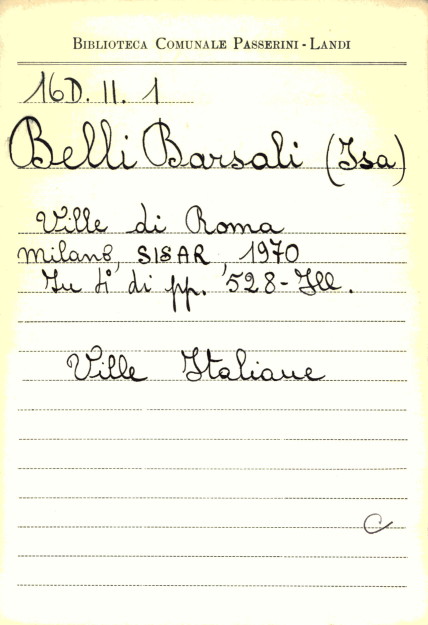 BIBLIOTECA COMUNALE PASSERINI - LANDI
16D. II. 1
Belli Barsali (Isa)
Ville di Roma
Milano, SISAR, 1970
In 4° di pp. 528 - Ill.
Ville Italiane
C